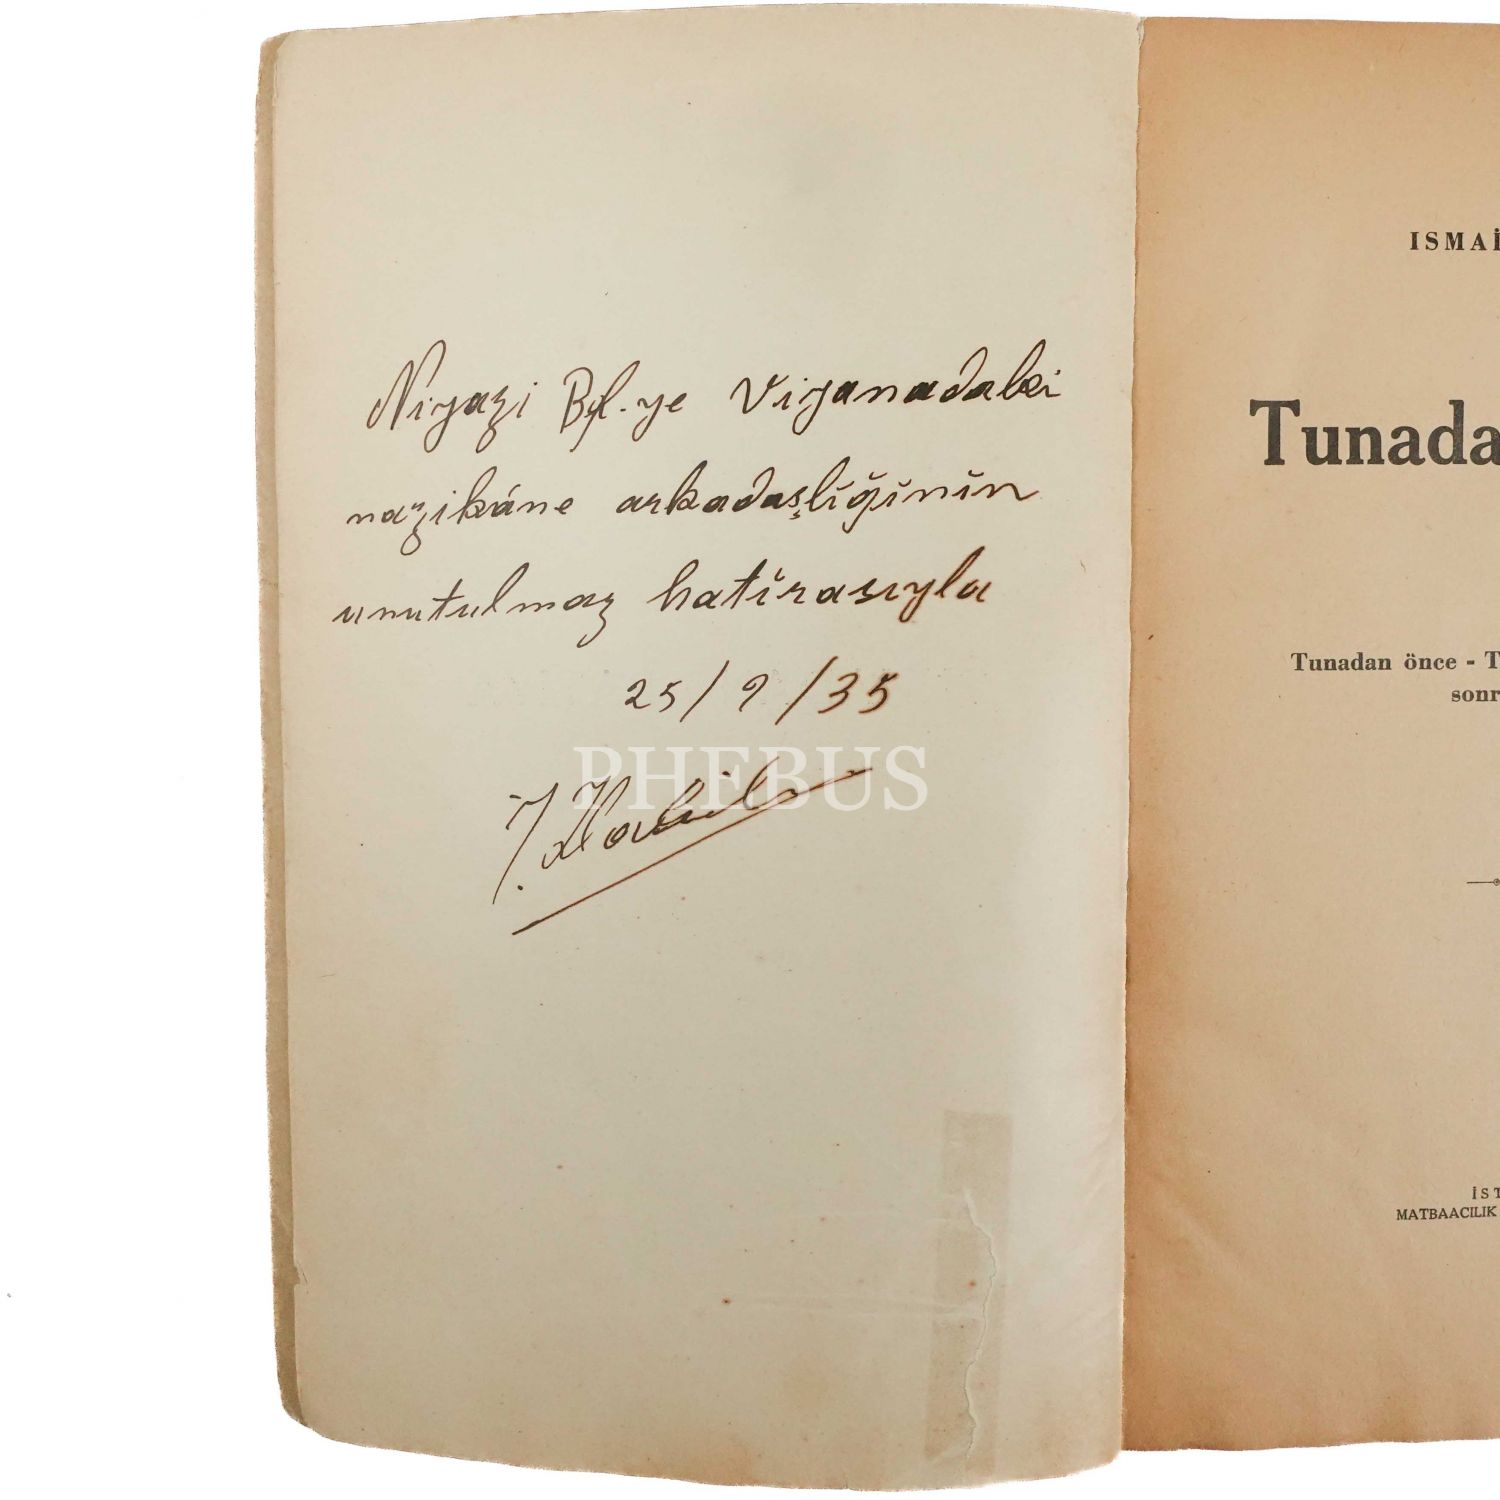 Niyazi Bf.ye Viyanadaki
nazikâne arkadaşlığının
unutulmaz hatırasıyla
25/9/35
İ. Habib
PHEBUS
ISMAİ
Tunada
Tunadan önce - T
sonr
İST
MATBAACILIK